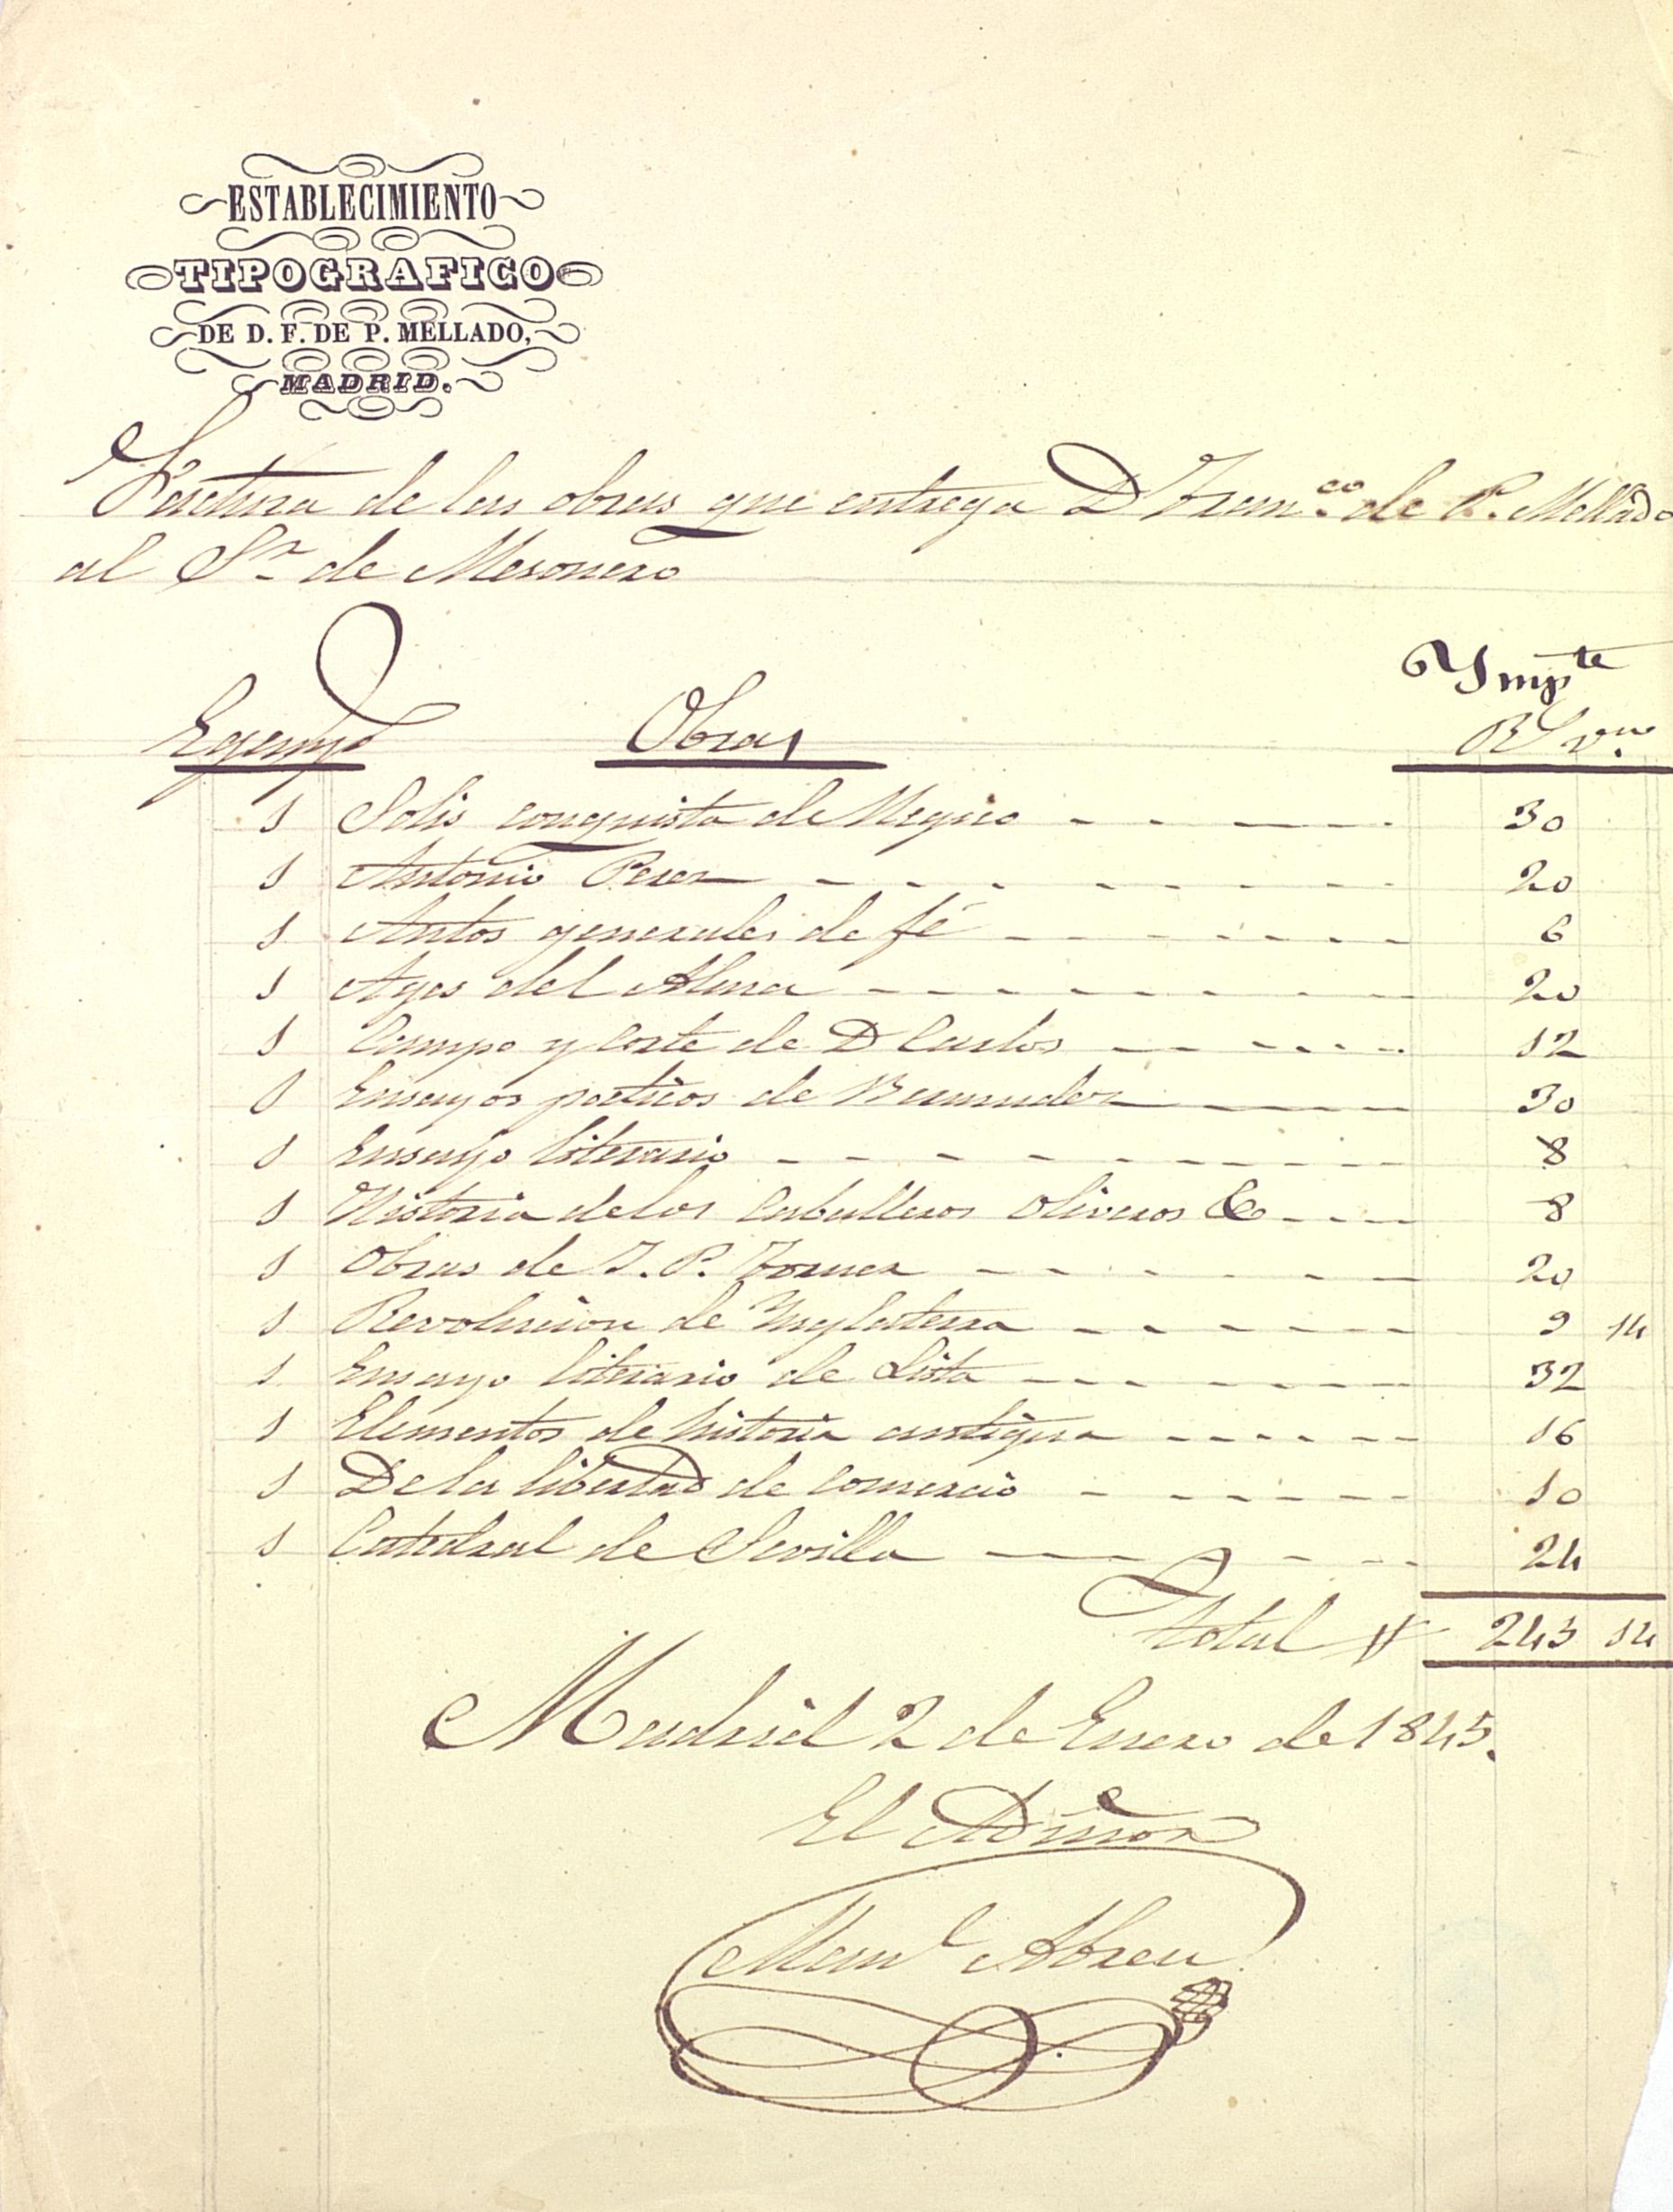 ESTABLECIMIENTO
TIPOGRAFICO
DE D. F. DE P. MELLADO,
MADRID.
Factura de las obras que entrega D Franco de P. Mellado
al Sr de Mesonero
Ympte
Egemps Obras Rs vn
1 Solis conquista de Megico 30
1 Antonio Perez 20
1 Autos generales de fé 6
1 Ayes del Alma 20
1 Campo y corte de D Carlos 12
1 Ensayos poeticos de Bermudez 30
1 Ensayo literario 8
1 Historia de los Caballeros Oliveros &a 8
1 Obras de J. P. Forner 20
1 Revolucion de Ynglaterra 9 14
1 Ensayo literario de Lista 32
1 Elementos de historia antigua 16
1 De la libertad de comercio 10
1 Catedral de Sevilla 24
Total 245 14
Madrid 2 de Enero de 1845.
El Admor
Manl Abreu